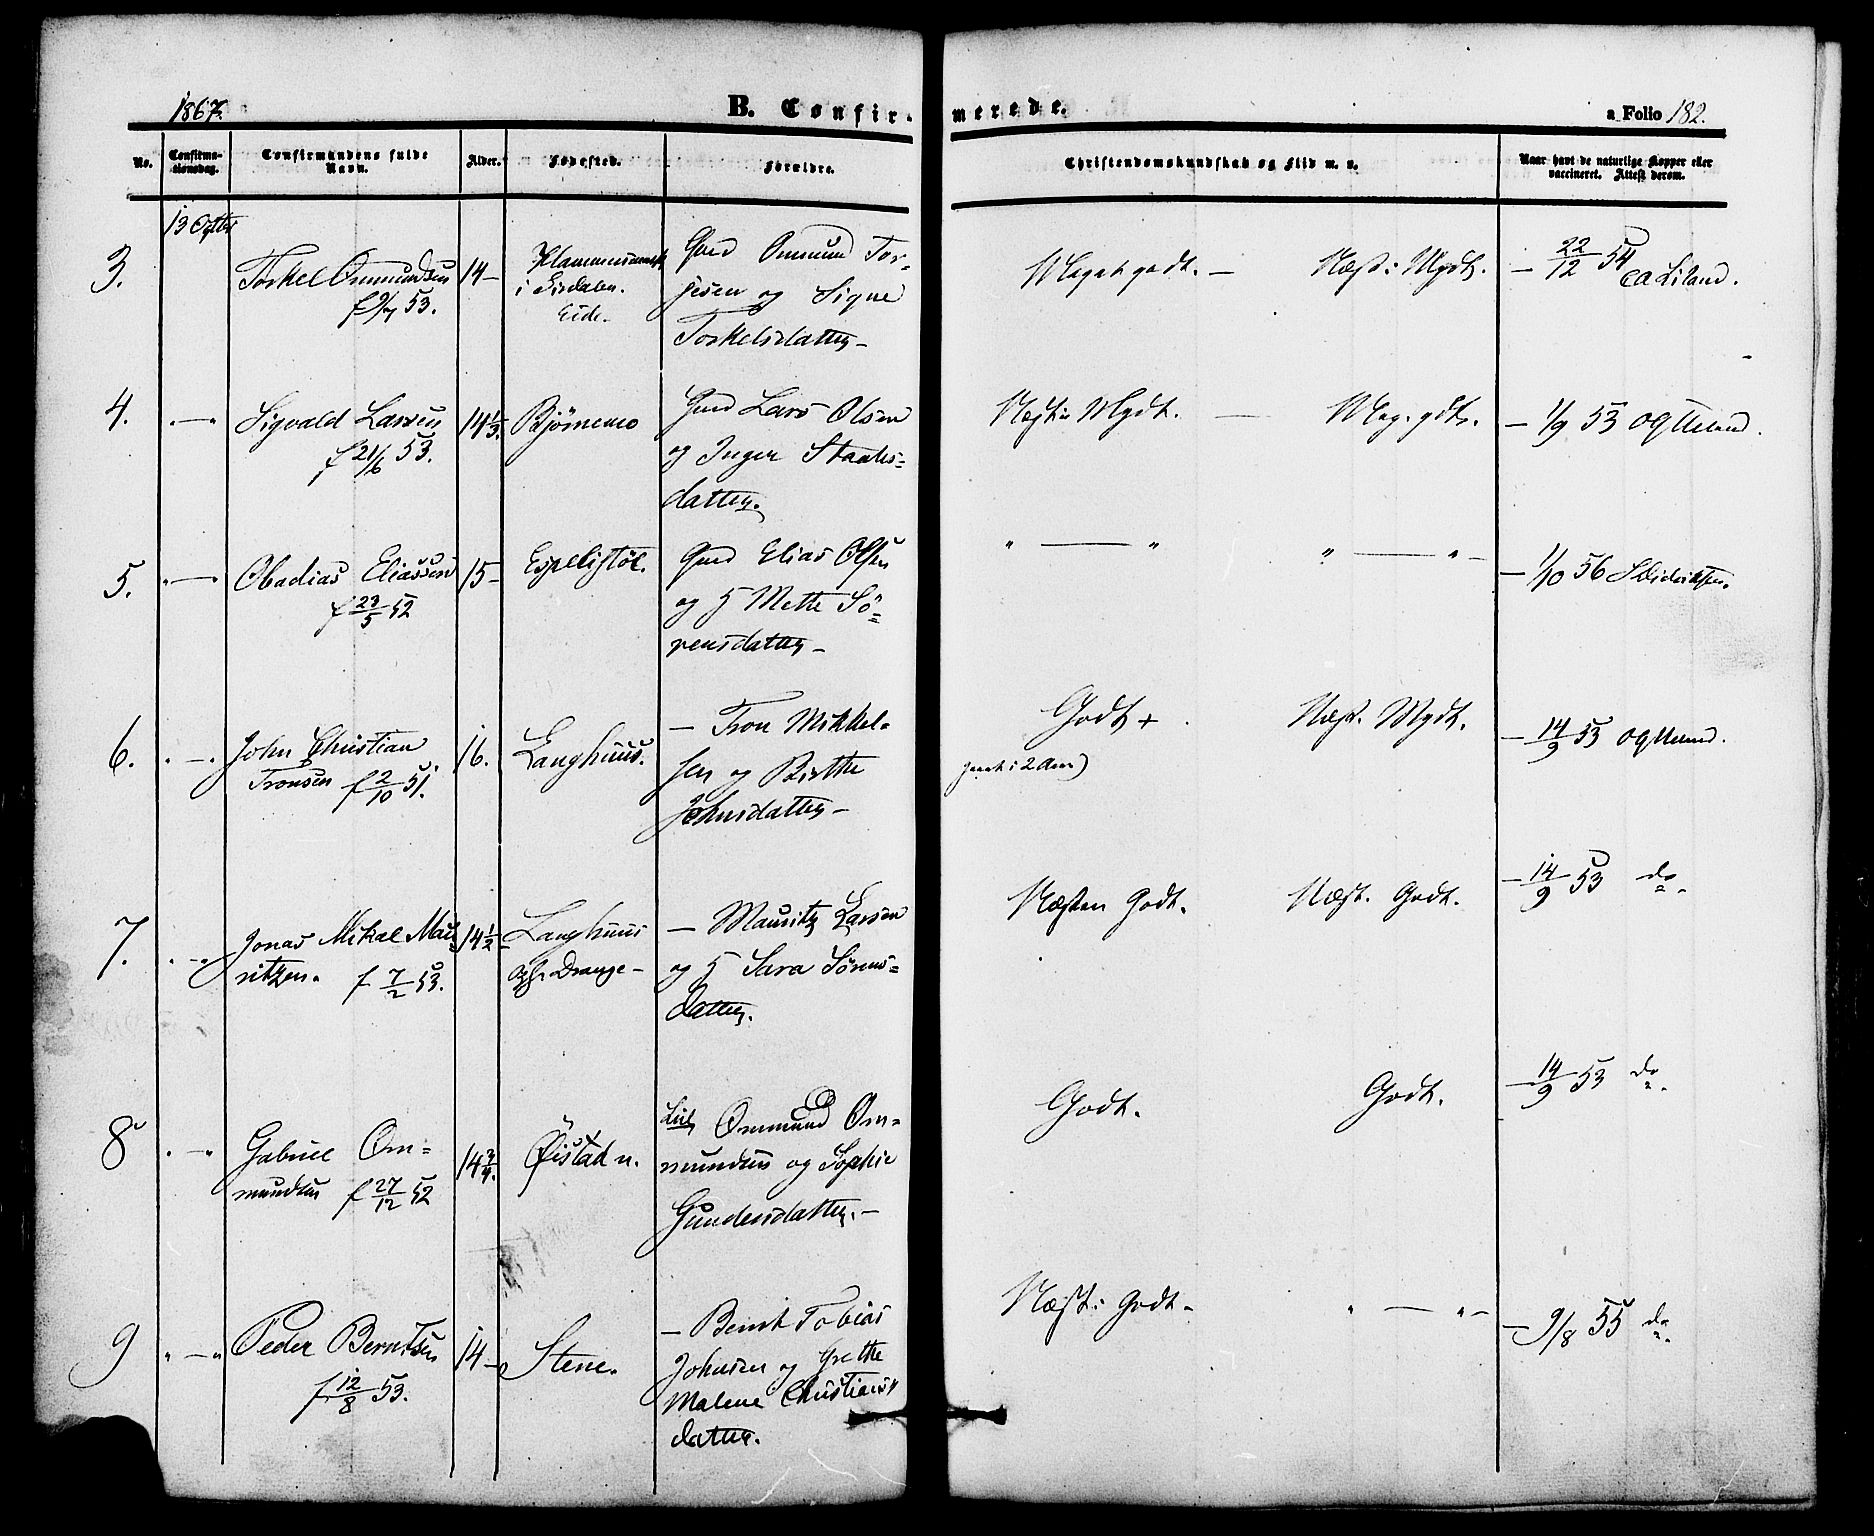 1867.
B. Confirmerede.
a Folio 182.
No.
Confirmationsdag.
Confirmandens fulde Navn.
Alder.
Fødested.
Forældre.
Christendomskundskab og Flid m. v.
Naar havt de naturlige Kopper eller vaccineret. Attest derom.
13 Octbr
3.
Torkel Ommundsen
f 9/7 53.
14-
i Sirdalen.
Eide.
Gmd Ommund Tor-
gesen og Signe
Torkelsdatter -
Meget godt. -
Næst: Mgdt.
- 22/12 54
CA Liland.
4.
Sigvald Larsen
f 21/6 53.
14 1/3.
Bjørnemo
Gmd Lars Olsen
og Inger Staals=
datter.
Næst: Mgdt. -
Meg. gdt.
- 1/9 53
5.
Obadias Eliassen
f 23/5 52
15-
Espelistøl.
Gmd Elias Olsen
og H Mette Sö=
rensdatter -
" — "
" — " -
- 1/10 56
6.
John Christian
Tronsen f 2/10 51.
16.
Langhuus.
- Tron Mikkel-
sen og Birthe
Johnsdatter -
Godt +
Næst. Mgdt.
- 14/9 53
7.
Jonas Mikal Mau
ritzen. f 7/2 53.
14 1/2
Langhuus
Drange -
- Mauritz Larsen
og H Sara Sörens=
datter.
Næsten Godt.
Næst. Godt.
- 14/9 53 do
8
Gabriel Om=
mundsen f 27/12 52
14 3/4.
Øistad n.
Ommund Om=
mundsen og Sophie
Gundersdatter. -
Godt.
Godt.
- 14/9 53 do
9
" — "
Peder Berntsen
f 12/8 53.
14-
Stene.
- Bernt Tobias
Johnsen og Grethe
Malene Christians"
datter.
Næst: Godt -
" — " -
- 9/8 55 do